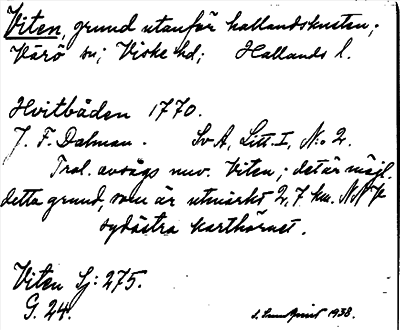 Viten, grund utanför hallandskusten;
Värö sn; Viske hd; Hallands l.
Hvitbåden 1770.
J. F. Dalman. Sv A, Litt. I, No 2.
Trol. avsågs nuv. Viten; det är möjl.
detta grund, som är utmärkt 2,7 km. NNV
sydöstra karthörnet.
Viten Sj: 275.
G. 24.
1938.